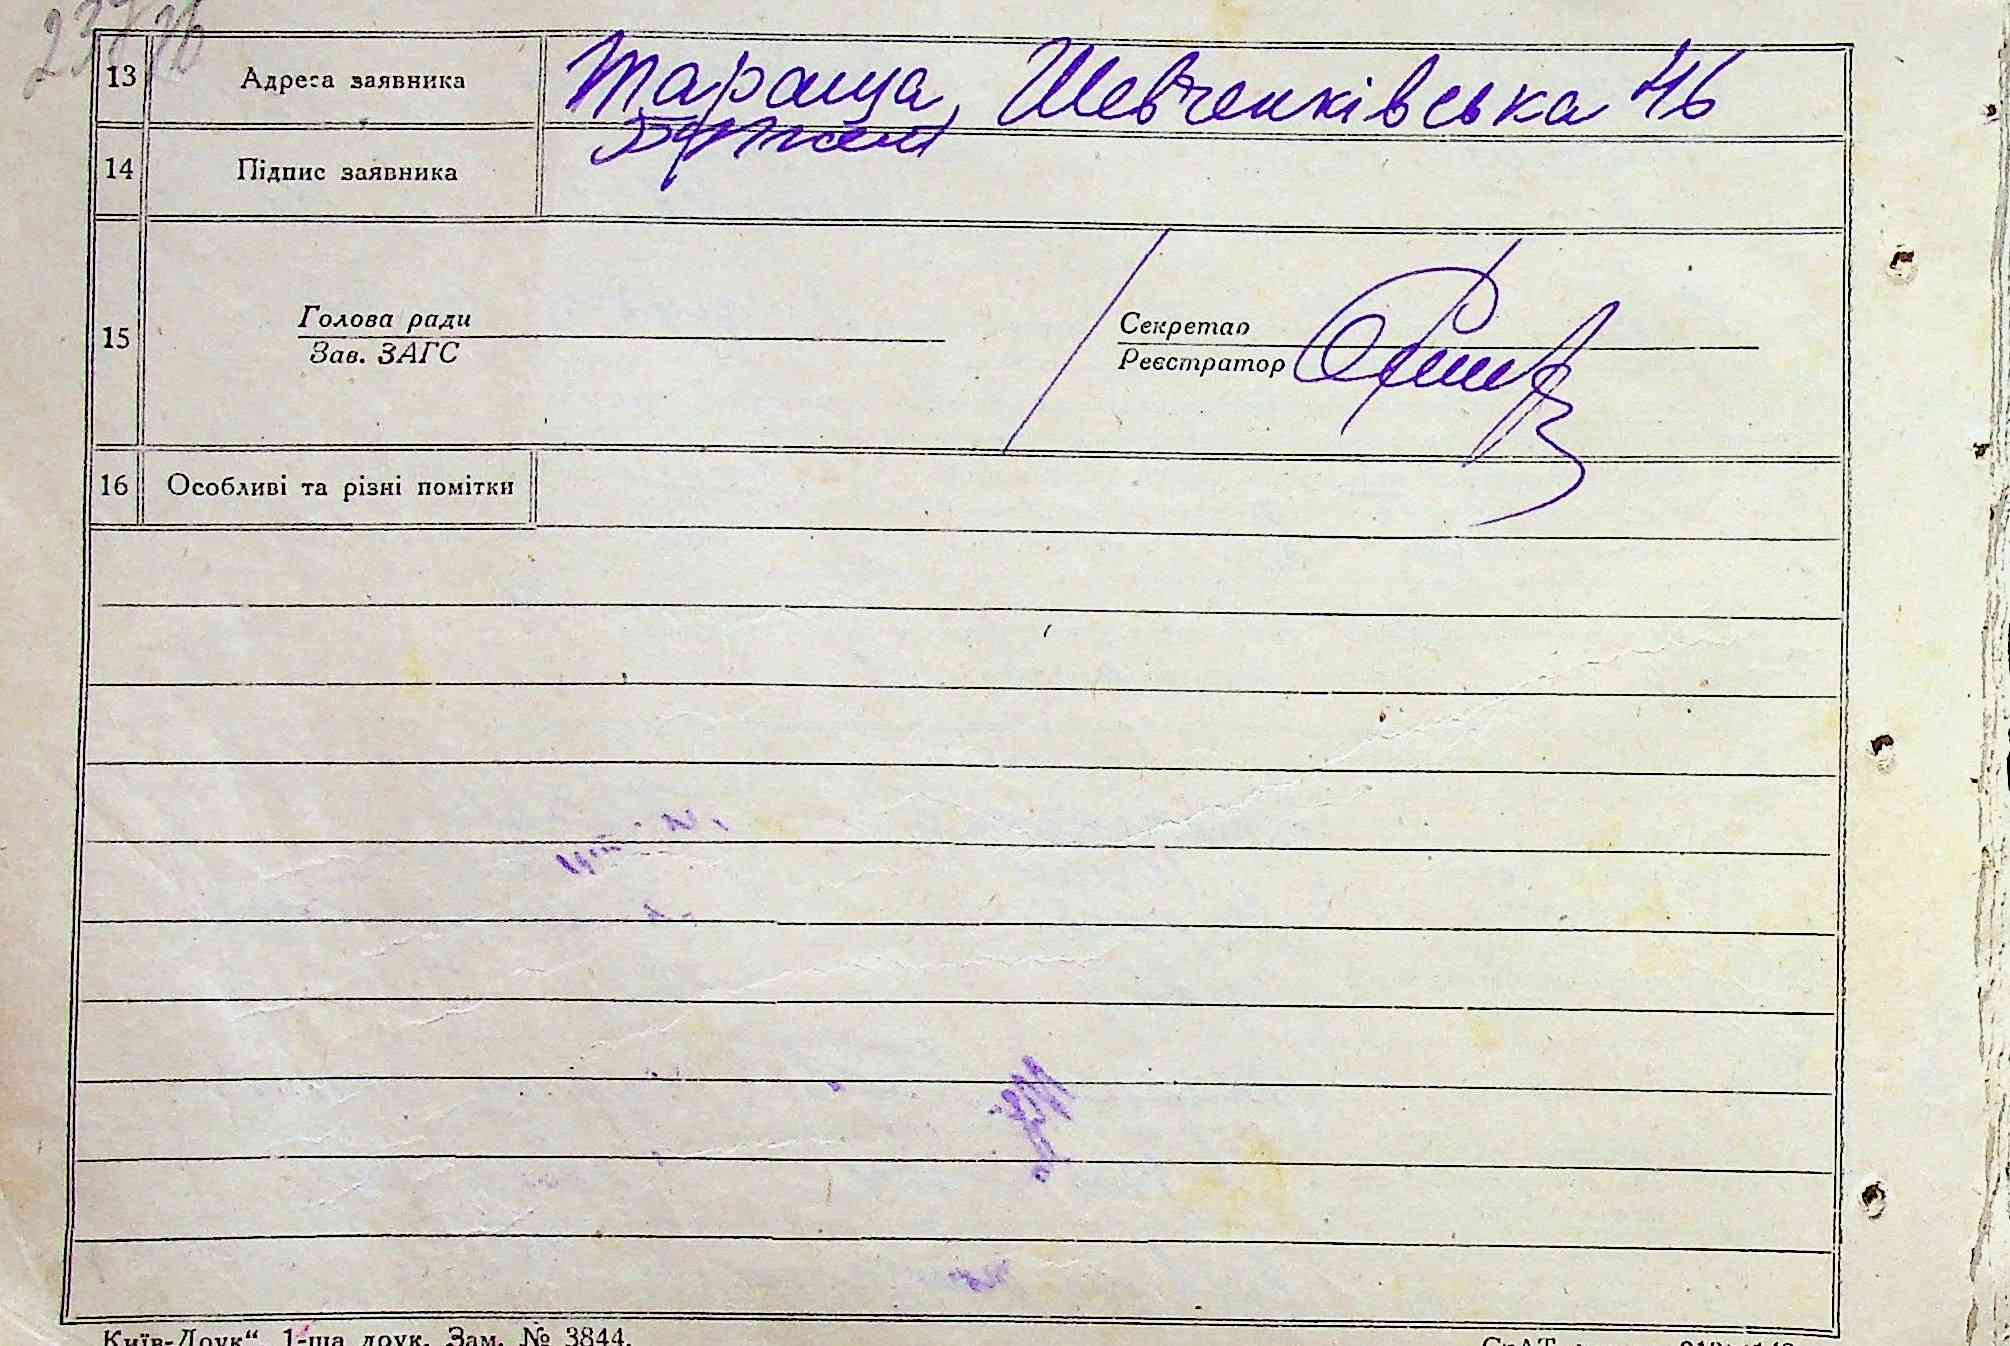 13 Адреса заявника Тараща, Шевченківська 46
14 Підпис заявника
Голова ради Секретар
15
Зав. ЗАГС Реєстратор
16 Особливі та різні помітки
Київ-Друк“. 1-ша друк. Зам. № 3844.